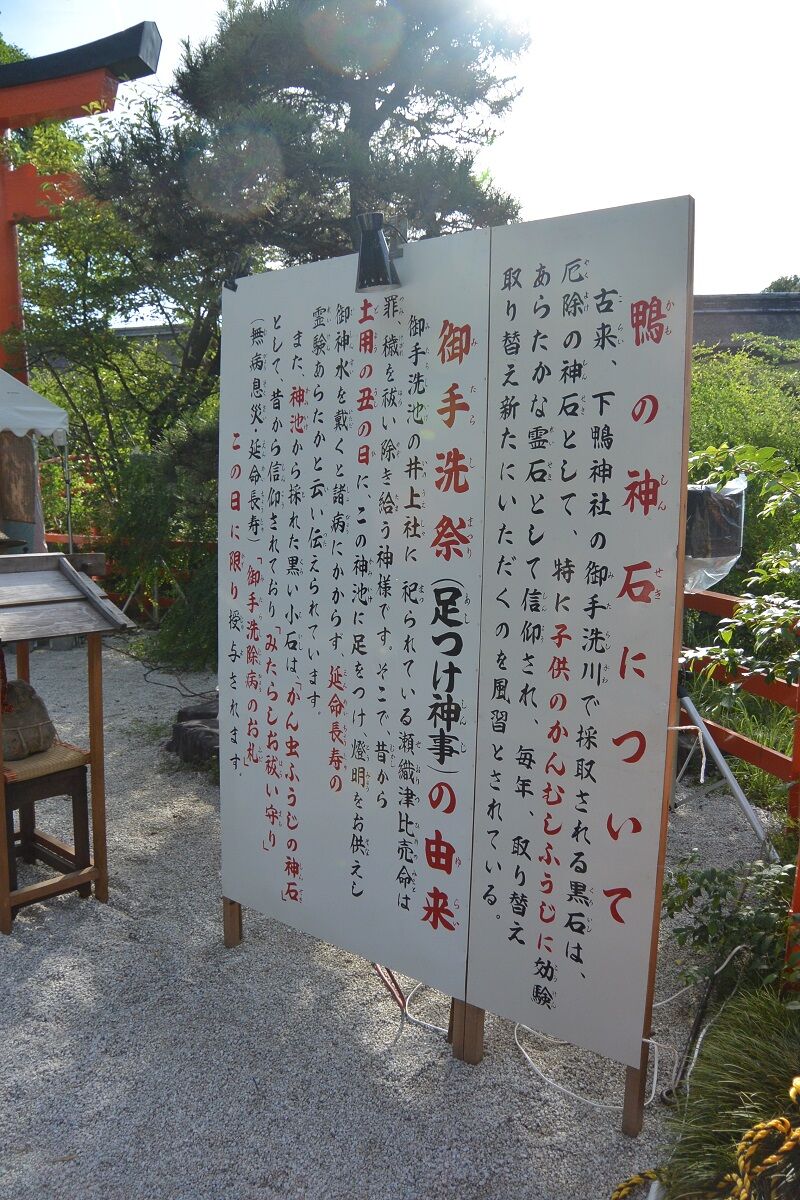 鴨の神石について
古来、下鴨神社の御手洗川で採取される黒石は、
厄除の神石として、特に子供のかんむしふうじに効験
あらたかな霊石として信仰され、毎年、取り替え
取り替え新たにいただくのを風習とされている。
御手洗祭（足つけ神事）の由来
御手洗池の井上社に祀られている瀬織津比売命は
罪、穢を祓い除き給う神様です。そこで、昔から
土用の丑の日に、この神池に足をつけ、燈明をお供えし
御神水を戴くと諸病にかからず、延命長寿の
霊験あらたかと云い伝えられています。
また、神池から採れた黒い小石は、「かん虫ふうじの神石」
として、昔から信仰されており「みたらしお祓い守り」
（無病息災・延命長寿）「御手洗除病のお札」
この日に限り授与されます。